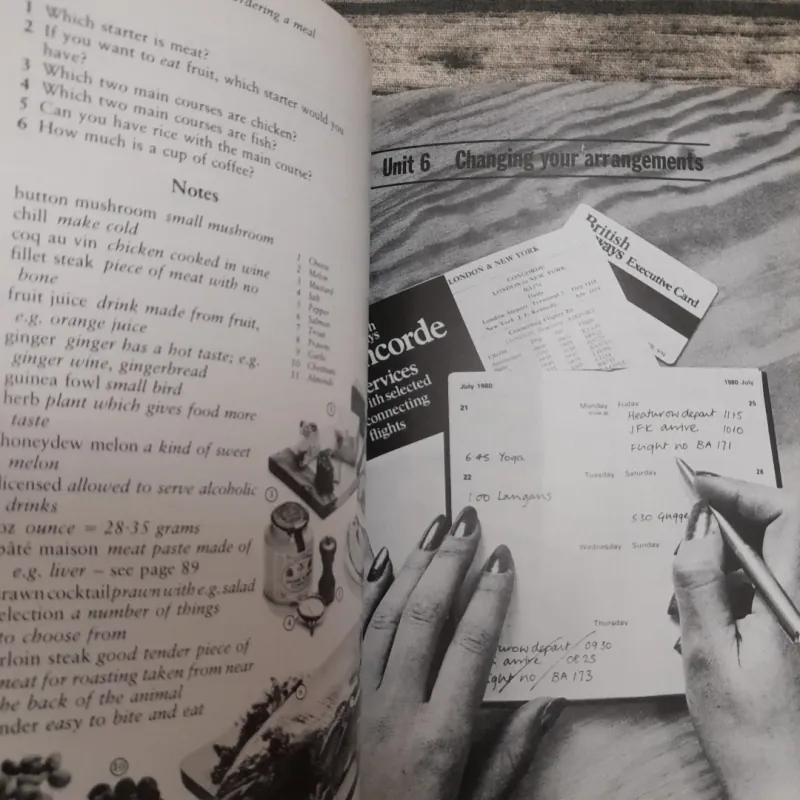 ordering a meal
1 Which starter is meat?
2 If you want to eat fruit, which starter would you
have?
3 Which two main courses are chicken?
4 Which two main courses are fish?
5 Can you have rice with the main course?
6 How much is a cup of coffee?
Notes
button mushroom small mushroom
chill make cold
coq au vin chicken cooked in wine
fillet steak piece of meat with no
bone
fruit juice drink made from fruit,
e.g. orange juice
ginger ginger has a hot taste; e.g.
ginger wine, gingerbread
guinea fowl small bird
herb plant which gives food more
taste
honeydew melon a kind of sweet
melon
licensed allowed to serve alcoholic
drinks
oz ounce = 28·35 grams
pâté maison meat paste made of
e.g. liver – see page 89
rawn cocktail prawn with e.g. salad
election a number of things
to choose from
rloin steak good tender piece of
meat for roasting taken from near
he back of the animal
nder easy to bite and eat
1 Cheese
2 Melon
3 Mustard
4 Salt
5 Pepper
6 Salmon
7 Trout
8 Prawns
9 Garlic
10 Chestnuts
11 Almonds
Unit 6 Changing your arrangements
British
ways Executive Card
LONDON & NEW YORK
CONCORDE
LONDON to NEW YORK
Daily
New York, J. F. Kennedy
ncorde
ervices
ith selected
connecting
flights
July 1980
1980 July
21
Monday Friday
25
Heathrow depart 11 15
JFK arrive 10 10
Flight no BA 171
6 45 Yoga
22
Tuesday Saturday
26
1 00 Langans
5 30 Gugge
Wednesday Sunday
Thursday
urow depart 09 30
arrive 08 25
ght no BA 173